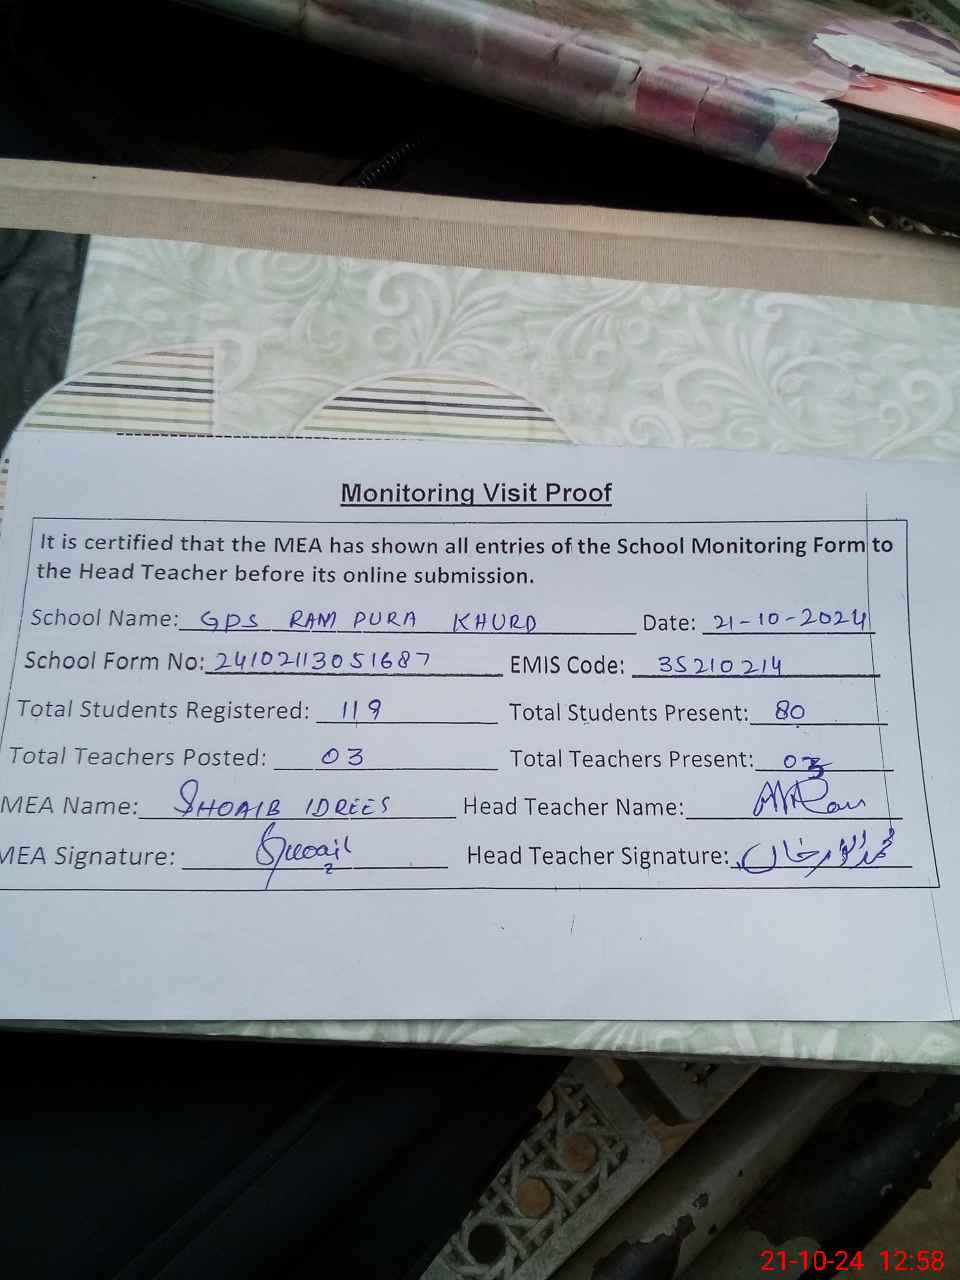 Monitoring Visit Proof
It is certified that the MEA has shown all entries of the School Monitoring Form to
the Head Teacher before its online submission.
School Name: GPS RAM PURA KHURD Date: 21-10-2024
School Form No: 24102113051687 EMIS Code: 35210214
Total Students Registered: 119 Total Students Present: 80
Total Teachers Posted: 03 Total Teachers Present: 03
MEA Name: SHOAIB IDREES Head Teacher Name:
MEA Signature: Shoaib Head Teacher Signature:
21-10-24 12:58